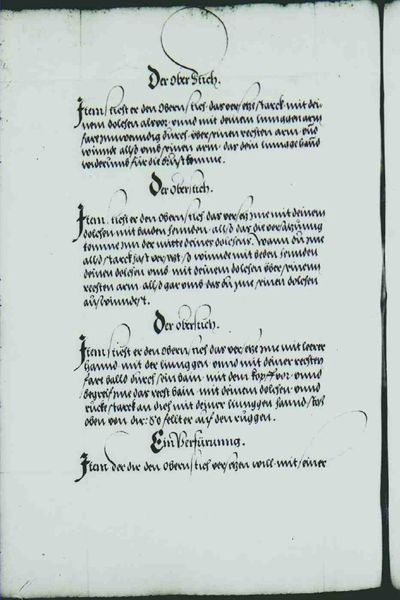 Der ober stich.
Item sticht er den obern stich das versetze starck mit dei-
nem dolchen abvor vnnd mit deinem linncken arm
far Inwendig durch vber seinen rechten arm vnd
wünde also vmb seinen arm das dein linnge hand
widerumb für die brüst komme.
Der oberstich.
Item sticht er den obern stich das versetz Ime mit deinem
dolchen mit baiden hennden also das die
komme Inn der mitte deines dolchens. Wann du Ime
also starck hast versetzt so winde mit beden hennden
deinen dolchen vmb mit deinem dolchen vber seinem
rechten arm also gar vmb das du Ime seinen dolchen
auswindest.
Der oberstich.
Item sticht er den obern stich das versetz Ime mit leerer
hannd mit der linnggen vnnd mit deiner rechten
fare balld durch sein bain mit dem kopff vor vnnd
begreif Ime das recht bain mit deinem dolchen vnnd
rucke starck an dich mit deiner linnggen hannd stos
oben von dir: So fellt er auf den ruggen.
Ein Verfürung.
Item der dir den obern stich versetzen will mit seiner